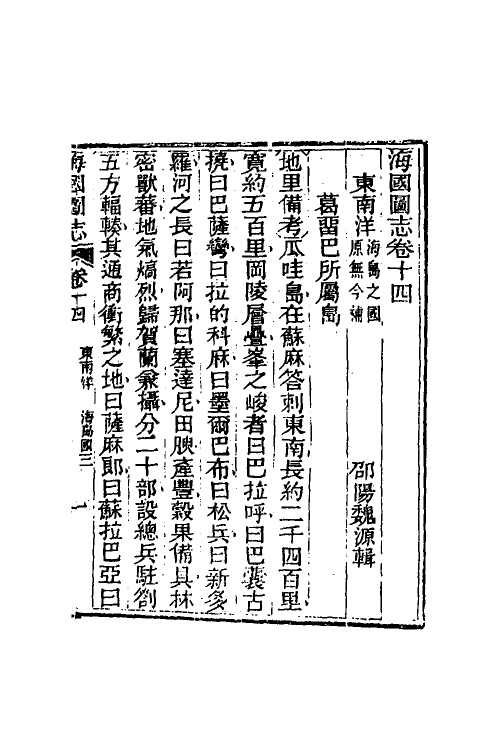 海國圖志卷十四
東南洋海島之國原無今補 邵陽魏源輯
葛畱巴所屬島
地里備考瓜哇島在蘇麻答剌東南長約二千四百里
寬約五百里岡陵層疊峯之峻者曰巴拉呼曰巴囊古
撓曰巴薩彎曰拉的科麻曰墨爾巴布曰松兵曰新多
羅河之長曰若阿那曰塞達尼田腴產豐穀果備具林
密獸蕃地氣熇烈歸賀蘭兼攝分二十部設總兵駐劄
五方輻輳其通商衝繁之地曰薩麻郎曰蘇拉巴亞曰
海國圖志 卷十四 東南洋 海島國三 一